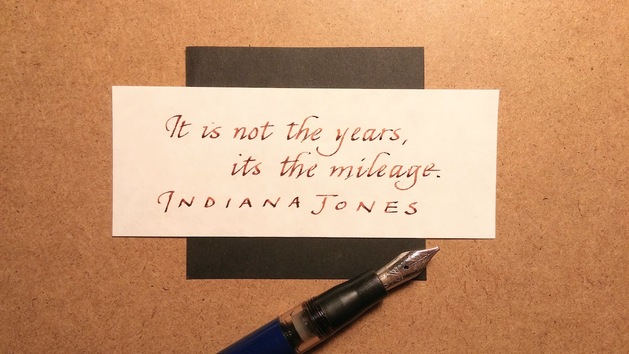 It is not the years,
its the mileage.
INDIANA JONES